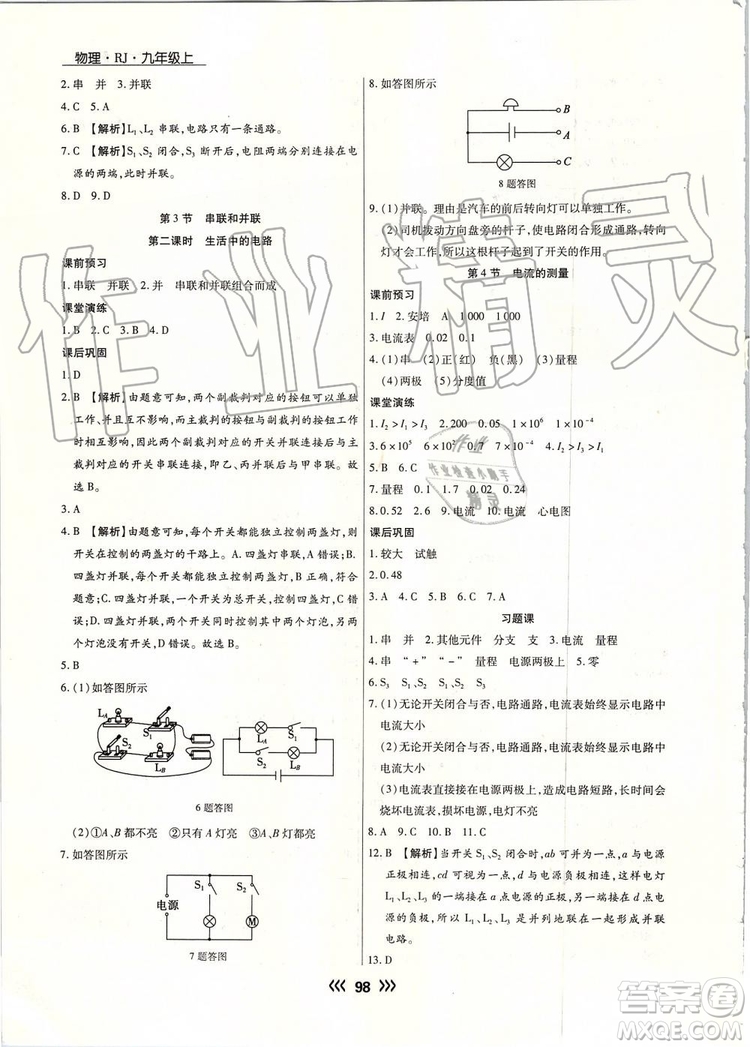 物理·RJ·九年级上
2.串　并　3.并联
4.C　5.A
6.B　【解析】L₁、L₂ 串联,电路只有一条通路。
7.C　【解析】S₁、S₂ 闭合,S₃ 断开后,电阻两端分别连接在电
源的两端,此时并联。
8.D　9.D
第3节　串联和并联
第二课时　生活中的电路
课前预习
1.串联　并联　2.并　串联和并联组合而成
课堂演练
1.B　2.C　3.D　4.B
课后巩固
1.D
2.B　【解析】由题意可知,两个副裁判对应的按钮可以单独
工作、并且互不影响,而主裁判的按钮与副裁判对应的按钮工作
时相互影响,因此两个副裁判对应的开关并联连接后再与主
裁判对应的开关串联连接,即乙、丙并联后与甲串联。故
选B。
3.A
4.B　【解析】由题意可知,每个开关都能独立控制两盏灯,则
开关在控制的两盏灯的干路上。A.四盏灯串联,A错误;B.
四盏灯并联,每个开关都能独立控制两盏灯,B正确;C.四盏
灯并联,一个开关为总开关,另一个开关控制两个灯泡,C错
误;D.四盏灯并联,一个开关同时控制其中两个灯泡,另外
两个灯泡没有开关,D错误。故选B。
5.B
6.(1)如答图所示
L_A
S₁
S₂
L_B
L_A
S₁
S₂
L_B
6题答图
(2)①A、B都不亮　②只有A灯亮　③A、B灯都亮
7.如答图所示
电源
S₁
S₂
M
7题答图
8.如答图所示
B
A
C
8题答图
9.(1)并联。理由是汽车的前后转向灯可以单独工作。
(2)司机拨动方向盘旁的杆子,使电路闭合形成通路,转向
灯才会工作,所以这根杆子起到了开关的作用。
第4节　电流的测量
课前预习
1.I　2.安培　A　1 000　1 000
3.电流表　0.02　0.1
4.(1)串　(2)正(红)　负(黑)　(3)量程
(4)两极　(5)分度值
课堂演练
1.I₂＞I₁＞I₃　2.200　0.05　1×10⁶　1×10⁻⁴
3.6×10⁵　6×10⁻⁴　4.I₂＞I₃＞I₁
5.B　6.C
7.量程　0.1　1.7　0.02　0.34
8.0.52　9.电流　10.电流　心电图
课后巩固
1.较大　试触
2.0.48
3.A　4.C　5.A　6.D
习题课
1.串　并　2.其他元件　分支　支　3.电流　量程
4.串　“＋”　“－”　量程　电源两极上　5.零
6.S₃　S₁、S₂　S₂、S₃
7.(1)无论开关闭合与否,电路通路,电流表始终显示电路中
电流大小
(2)无论开关闭合与否,电路通路,电流表始终显示电路中
电流大小
(3)电流表直接接在电源两极上,造成电路短路,长时间会
烧坏电流表,损坏电源,电灯不亮
8.A　9.C　10.B　11.C
12.B　【解析】当开关S₁、S₂ 闭合时,ab可并为一点,a与电源
正极相连,cd可视为一点,d与电源负极相连,这时电灯
L₁、L₂、L₃ 一端连接在a点电源的正极,另一端连接在d点
电源的负极,所以L₁、L₂、L₃ 是并列地连在电路中形成并联
电路。
13.D
98
作业精灵
作业
作业检查小助手
精灵
答案圈
MXQE.COM